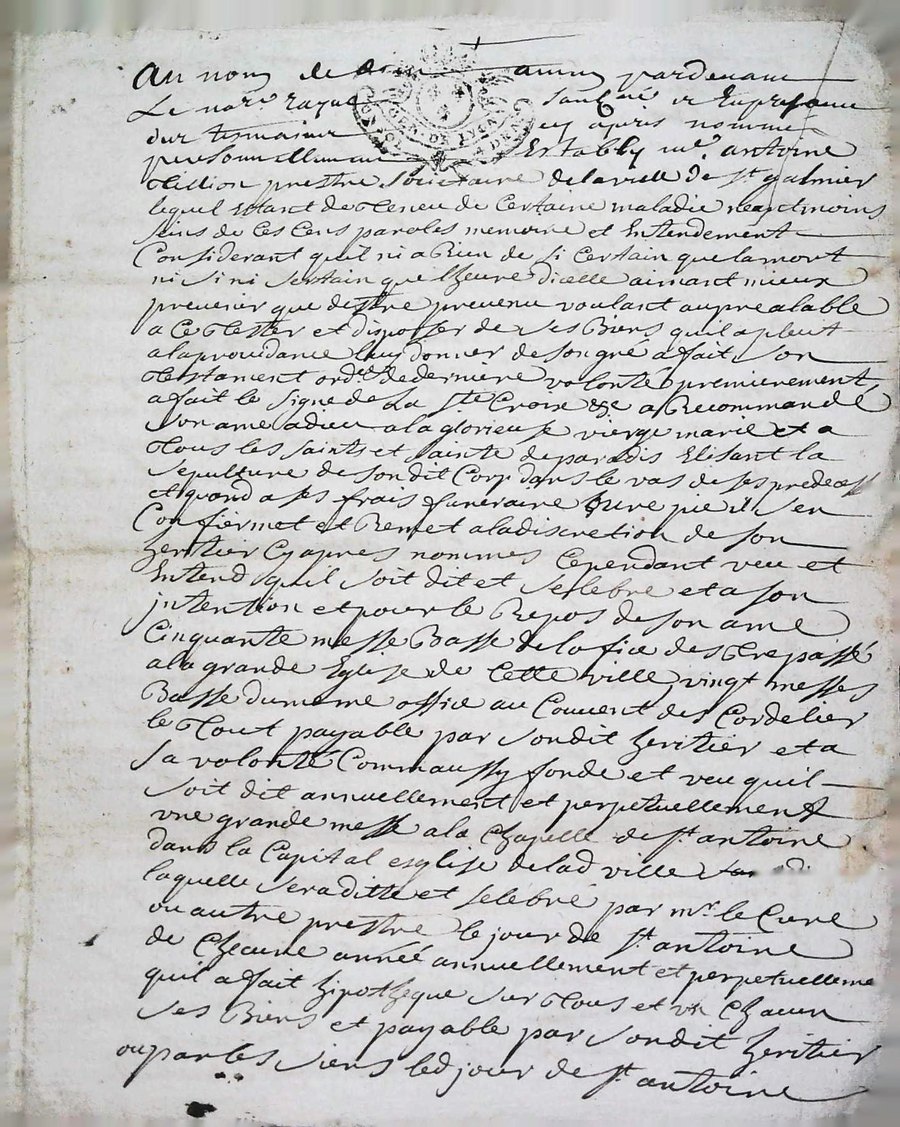 Au nom de amen pardevant
Le no.re royal soubsigné et En presence
dur tesmains cy apres nommés
personnellement Estably me. antoine
tillion prestre Societaire de la ville de St galmier
lequel Estant detteneu de Certaine maladie neanctmoins
sains de ces Cens paroles memoire et Entendement
Considerant qu'il ni a Rien de si Certain que la mort
ni si ni sertain que lheure dicelle aimant mieux
prevenir que destre prevenu voulant au prealable
a Ce tester et disposer de ses Biens qu'il a pleut
a la providance luy donner de son gré a fait son
testament ord.re de derniere volonté premierement
a fait le signe de La Ste Croix &c a Recommandé
son ame a dieu a la glorieuse vierge marie et a
tous les saints et sainte de paradis Elisant la
sepulture de son dit Corp dans le vas de ses predecess
et quand a ses frais funeraire Eure pie il s'en
Confiermet et Remet a la discretion de son
heritier Cy apres nommes Cependant veu et
Entend quil soit dit et selebre et a son
jntention et pour le Repos de son ame
Cinquante messe Basse de lofice des trepassé
a la grande Eglise de Cette ville, vingt messes
Basse du meme office au Couvent des Cordelier
le tout payable par son dit heritier et a
sa volonté Comm aussy fonde et veu quil
soit dit annuellement et perpetuellement
une grande messe a la Chapelle de St. antoine
dans la Capital esglise de lad ville
laquelle sera ditte et selebré par mr. le Cure
ou autre prestre le jour de St. antoine
de Cheaune année annuellement et perpetuelleme
quil a fait hipotheque sur tous et un Chacun
ses Biens et payable par son dit heritier
ou par les siens led jour de St. antoine